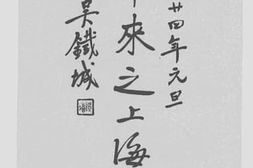 廿四年元旦
來之上海
吳鐵城